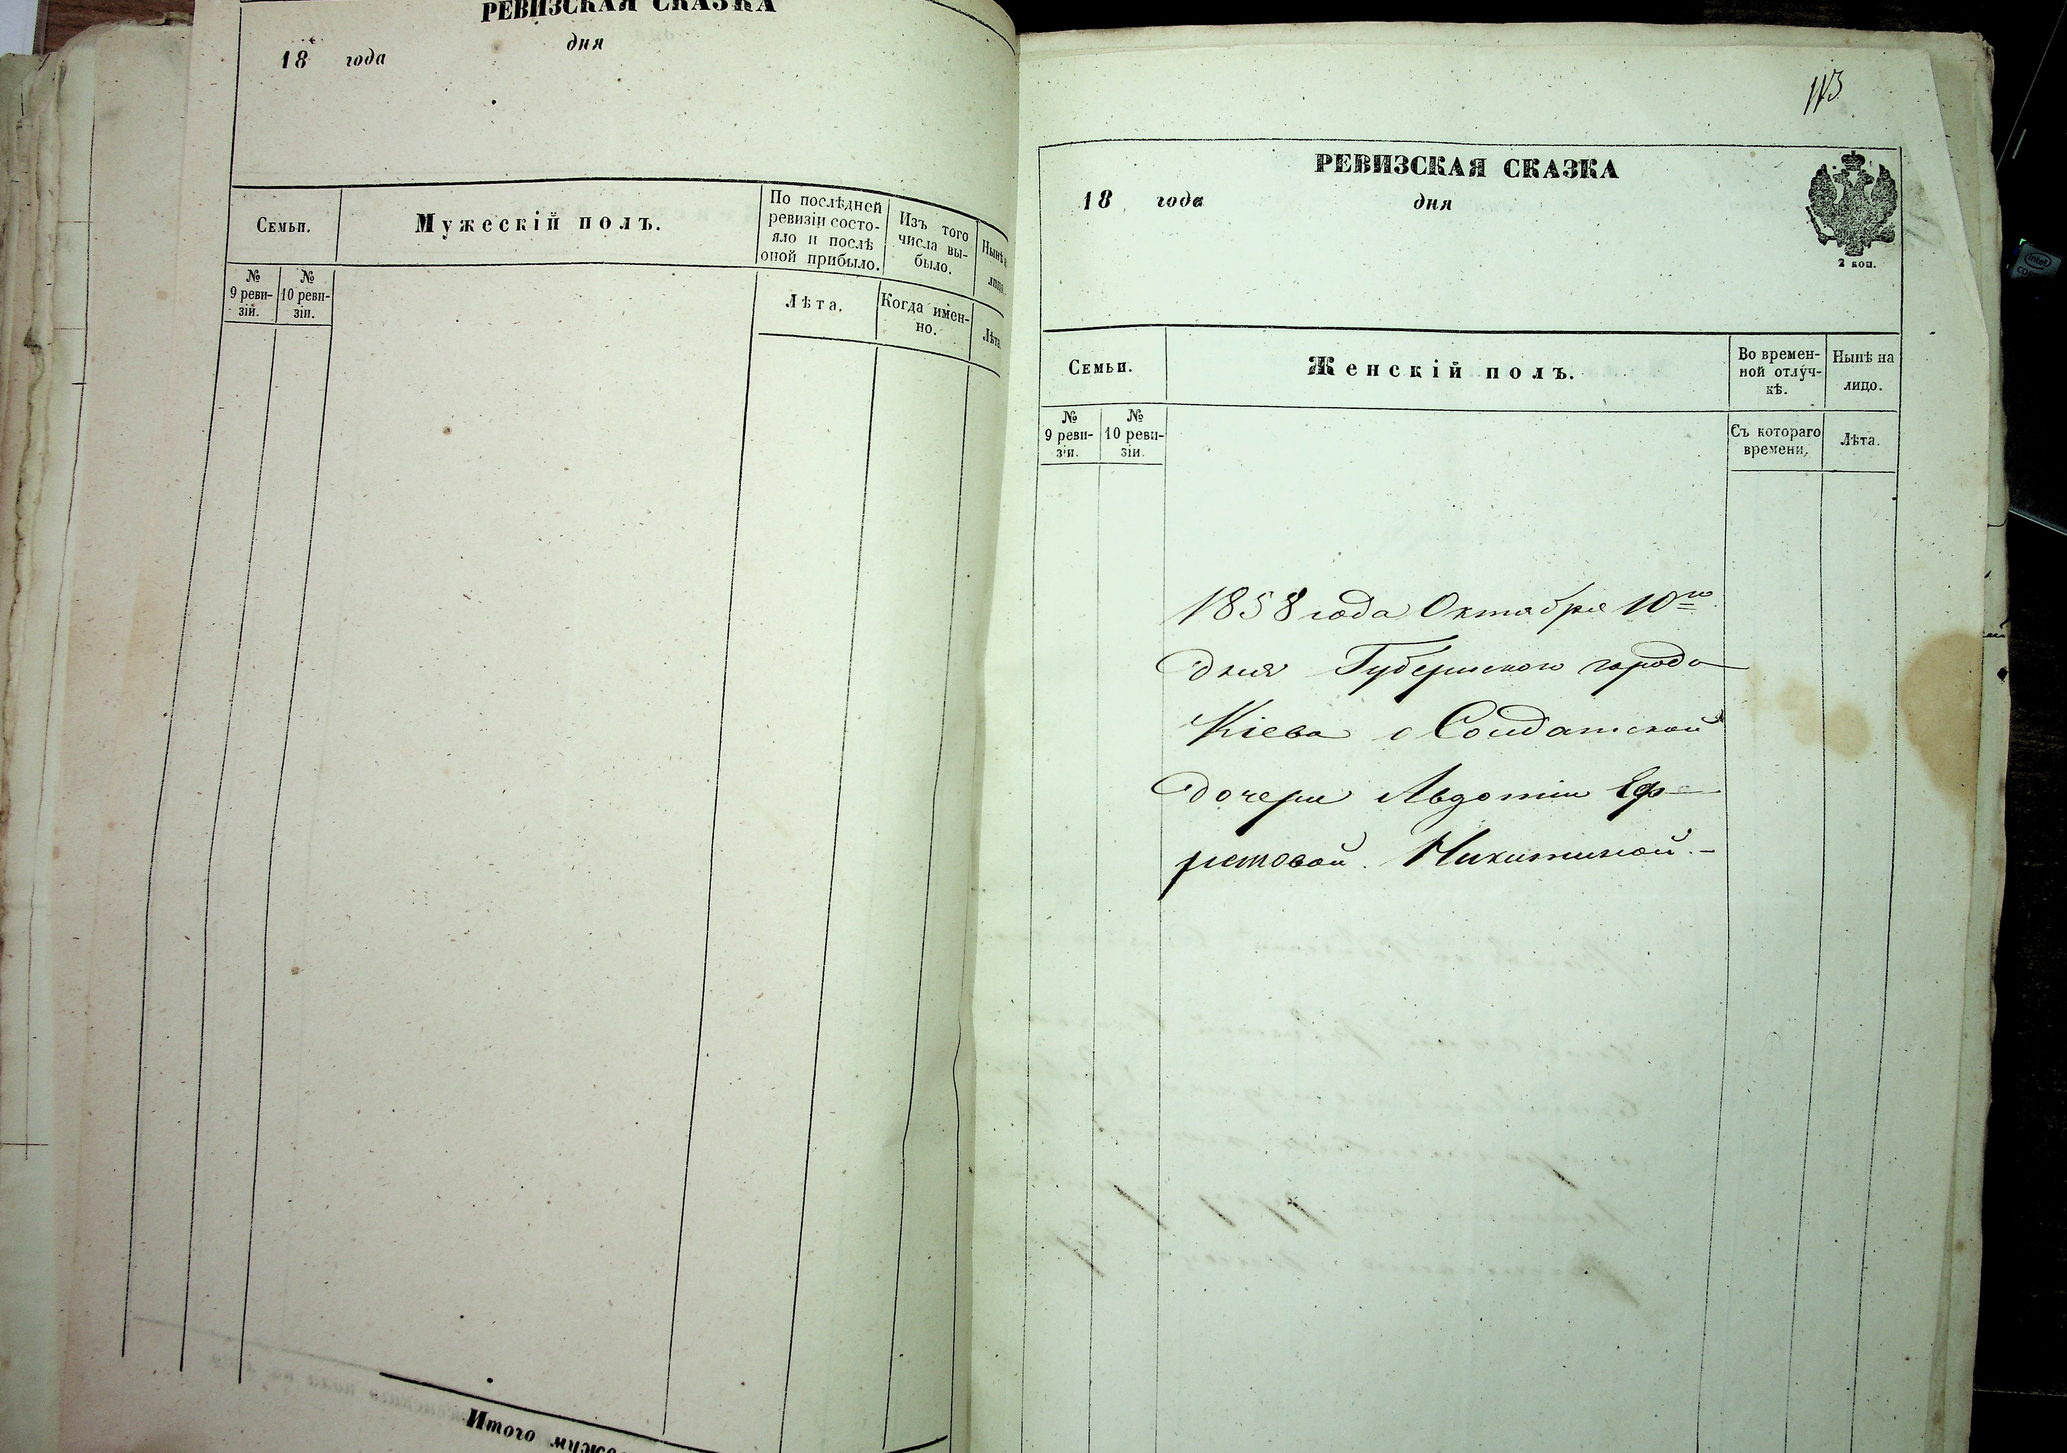 РЕВИЗСКАЯ СКАЗКА
18 года дня
Семьи.
Мужескій полъ.
По послѣдней
ревизіи состо-
яло и послѣ
оной прибыло.
Изъ того
числа вы-
было.
Нынѣ
№
9 реви-
зій.
№
10 реви-
зіи.
Лѣта.
Когда имен-
но.
Лѣта
Итого
113
РЕВИЗСКАЯ СКАЗКА
18 года дня
2 коп.
Семьи.
Женскій полъ.
Во времен-
ной отлуч-
кѣ.
Нынѣ на
лицо.
№
9 реви-
зіи.
№
10 реви-
зіи.
Съ котораго
времени.
Лѣта.
1858 года Октября 10го
дня Губернскаго города
Кіева о Солдатской
дочери Авдотіи Еф-
ремовой Никитиной.-